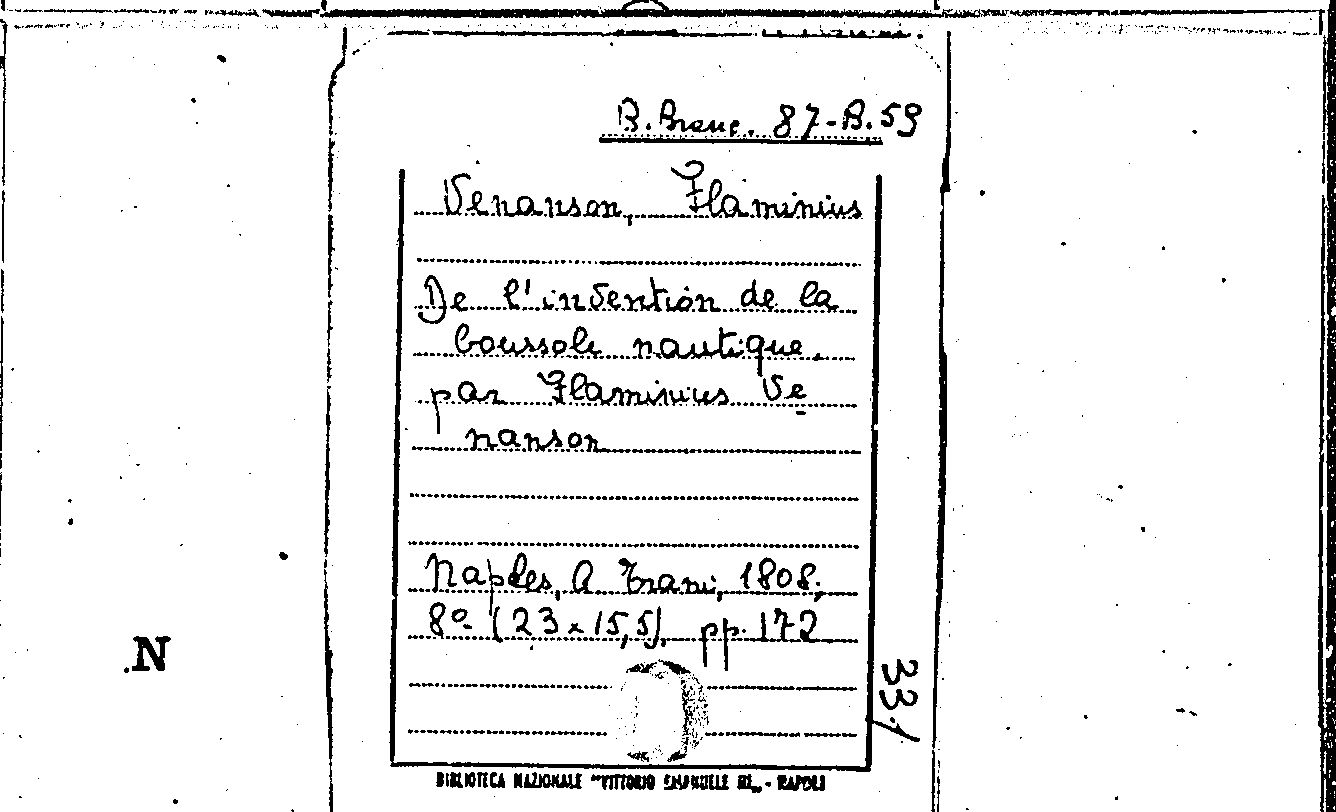 B. Branc. 87-B.59
Venanson, Flaminius
De l'invention de la
boussole nautique.
par Flaminius Ve
nanson
Naples, A Trani, 1808;
8º (23 x 15,5), pp. 172
331
N
BIBLIOTECA NAZIONALE "VITTORIO EMANUELE III„ - NAPOLI